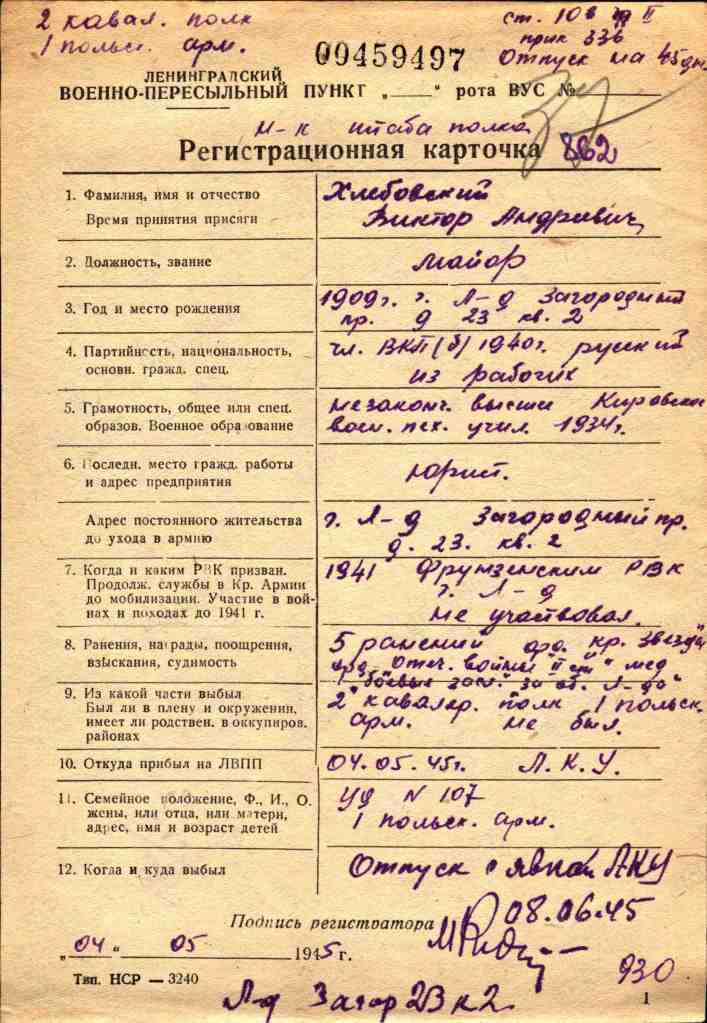 2 кавал. полк
1 польск. арм.
ст. 10в гр II
прик 336
Отпуск на 45 дн.
00459497
ЛЕНИНГРАДСКИЙ
ВОЕННО-ПЕРЕСЫЛЬНЫЙ ПУНКТ „____“ рота ВУС №
п-к штаба полка
Регистрационная карточка 862
1. Фамилия, имя и отчество
Время принятия присяги
Хлебовский
Виктор Андреевич,
2. Должность, звание
майор
3. Год и место рождения
1909 г. г. Л-д Загородный
пр. д 23 кв. 2
4. Партийность, национальность,
основн. гражд. спец.
чл. ВКП(б) 1940г. русский
из рабочих
5. Грамотность, общее или спец.
образов. Военное образование
незаконч. высшее Кировское
воен. пех. учил. 1934г.
6. Последн. место гражд. работы
и адрес предприятия
Юрист.
Адрес постоянного жительства
до ухода в армию
г. Л-д Загородный пр.
д. 23. кв. 2
7. Когда и каким РВК призван.
Продолж. службы в Кр. Армии
до мобилизации. Участие в вой-
нах и походах до 1941 г.
1941 Фрунзенским РВК
г. Л-д
не участвовал.
8. Ранения, награды, поощрения,
взыскания, судимость
5 ранений орд. кр. звезды
орд. Отеч. войны II ст" мед
"боевые засл." за об. Л-да"
9. Из какой части выбыл
Был ли в плену и окружении,
имеет ли родствен. в оккупиров.
районах
2 кавалер. полк 1 польск.
арм. не был.
10. Откуда прибыл на ЛВПП
04.05.45г. Л.К.У.
11. Семейное положение, Ф., И., О.
жены, или отца, или матери,
адрес, имя и возраст детей
уд N 107
1 польск. арм.
12. Когда и куда выбыл
Отпуск с явкой ЛКУ
08.06.45
Подпись регистратора
„04“ 05 1945 г.
Тип. НСР — 3240
930
Л-д Загор 23 к 2
1